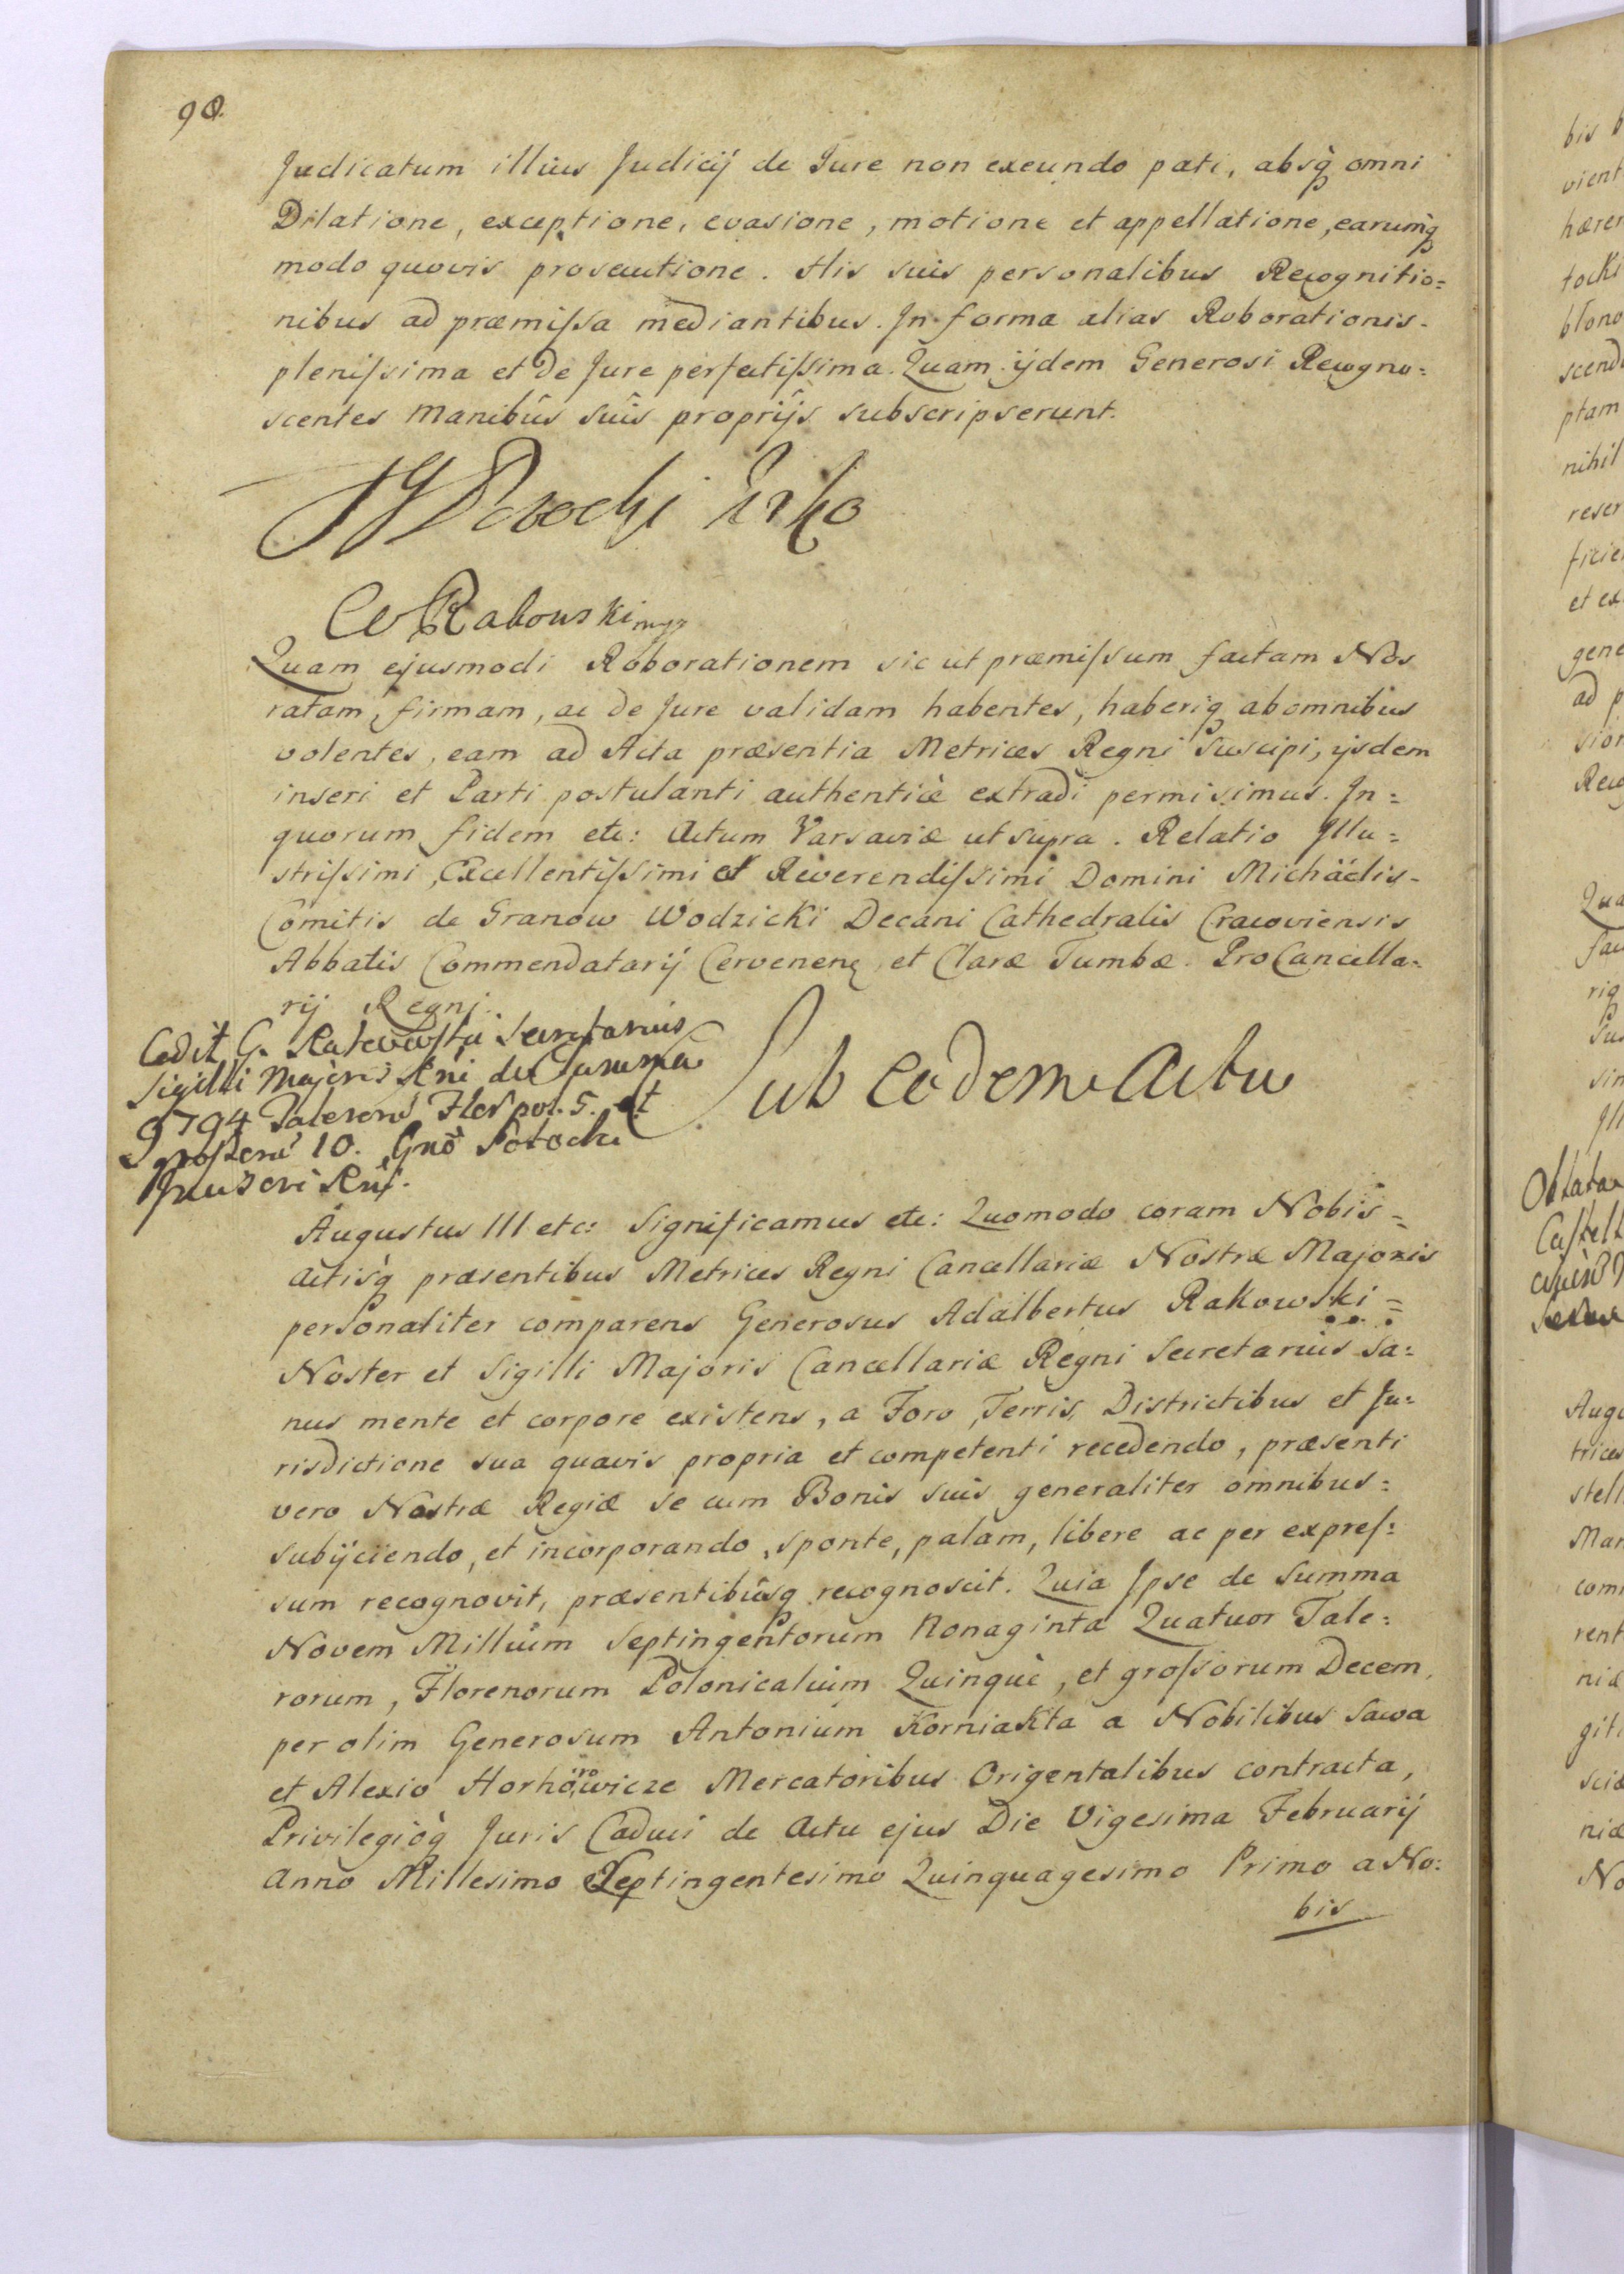 90.
Judicatum illius Judicij de Jure non exeundo pati, absq̀ omni
Dilatione, exceptione, evasione, motione et appellatione, earumq̀
modo quovis prosecutione. His suis personalibus Recognitio=
nibus ad præmiſsa mediantibus. In forma alias Roborationis-
pleniſsima et de Jure perfectiſsima. Quam ijdem Generosi Recogno=
scentes Manibûs suis proprijs subscripserunt.
Potocki
Rakowski mpp
Quam ejusmodi Roborationem sic ut præmiſsum factam Nos
ratam, firmam, ac de Jure validam habentes, haberiq ab omnibus
volentes, eam ad Acta præsentia Metrices Regni Suscipi, ijsdem
inseri et Parti postulanti authenticè extradi permisimus. In=
quorum fidem etc: Actum Varsaviæ ut supra. Relatio Illu=
striſsimi, Excellentiſsimi et Reverendiſsimi Domini Michäelis-
Comitis de Granow Wodzicki Decani Cathedralis Cracoviensis
Abbatis Commendatarij Cervenen, et Claræ Tumbæ. ProCancella=
rij Regni.
Cedit G. Secretarius
Sigilli Majoris Rni de Summa
9794 Talerorũ Flor pol. 5. et
groſsorũ 10. Gnõ Potocki
Sub eodem Actu
Augustus III etc: Significamus etc: Quomodo coram Nobis=
Actisq̀ præsentibus Metrices Regni Cancellariæ Nostræ Majoris
personaliter comparens Generosus Adalbertus Rakowski=
Noster et Sigilli Majoris Cancellariæ Regni Secretarius sa=
nus mente et corpore existens, a Foro, Terris, Districtibus et Ju=
risdictione sua quavis propria et competenti recedendo, præsenti
vero Nostræ Regiæ se cum Bonis suis generaliter omnibus=
subijciendo, et incorporando, sponte, palam, libere ac per expreſ=
sum recognovit, præsentibûsq recognoscit. Quia Ipse de Summa
Novem Millium Septingentorum Nonaginta Quatuor Tale=
rorum, Florenorum Polonicalium Quinquè, et groſsorum Decem,
per olim Generosum Antonium Korniakta a Nobilibus Sawa
et Alexio Horhorowicze Mercatoribus Origentalibus contracta,
Privilegiòq̀ Juris Caduci de Actu ejus Die Vigesima Februarij
Anno Millesimo Septingentesimo Quinquagesimo Primo a No=
bis